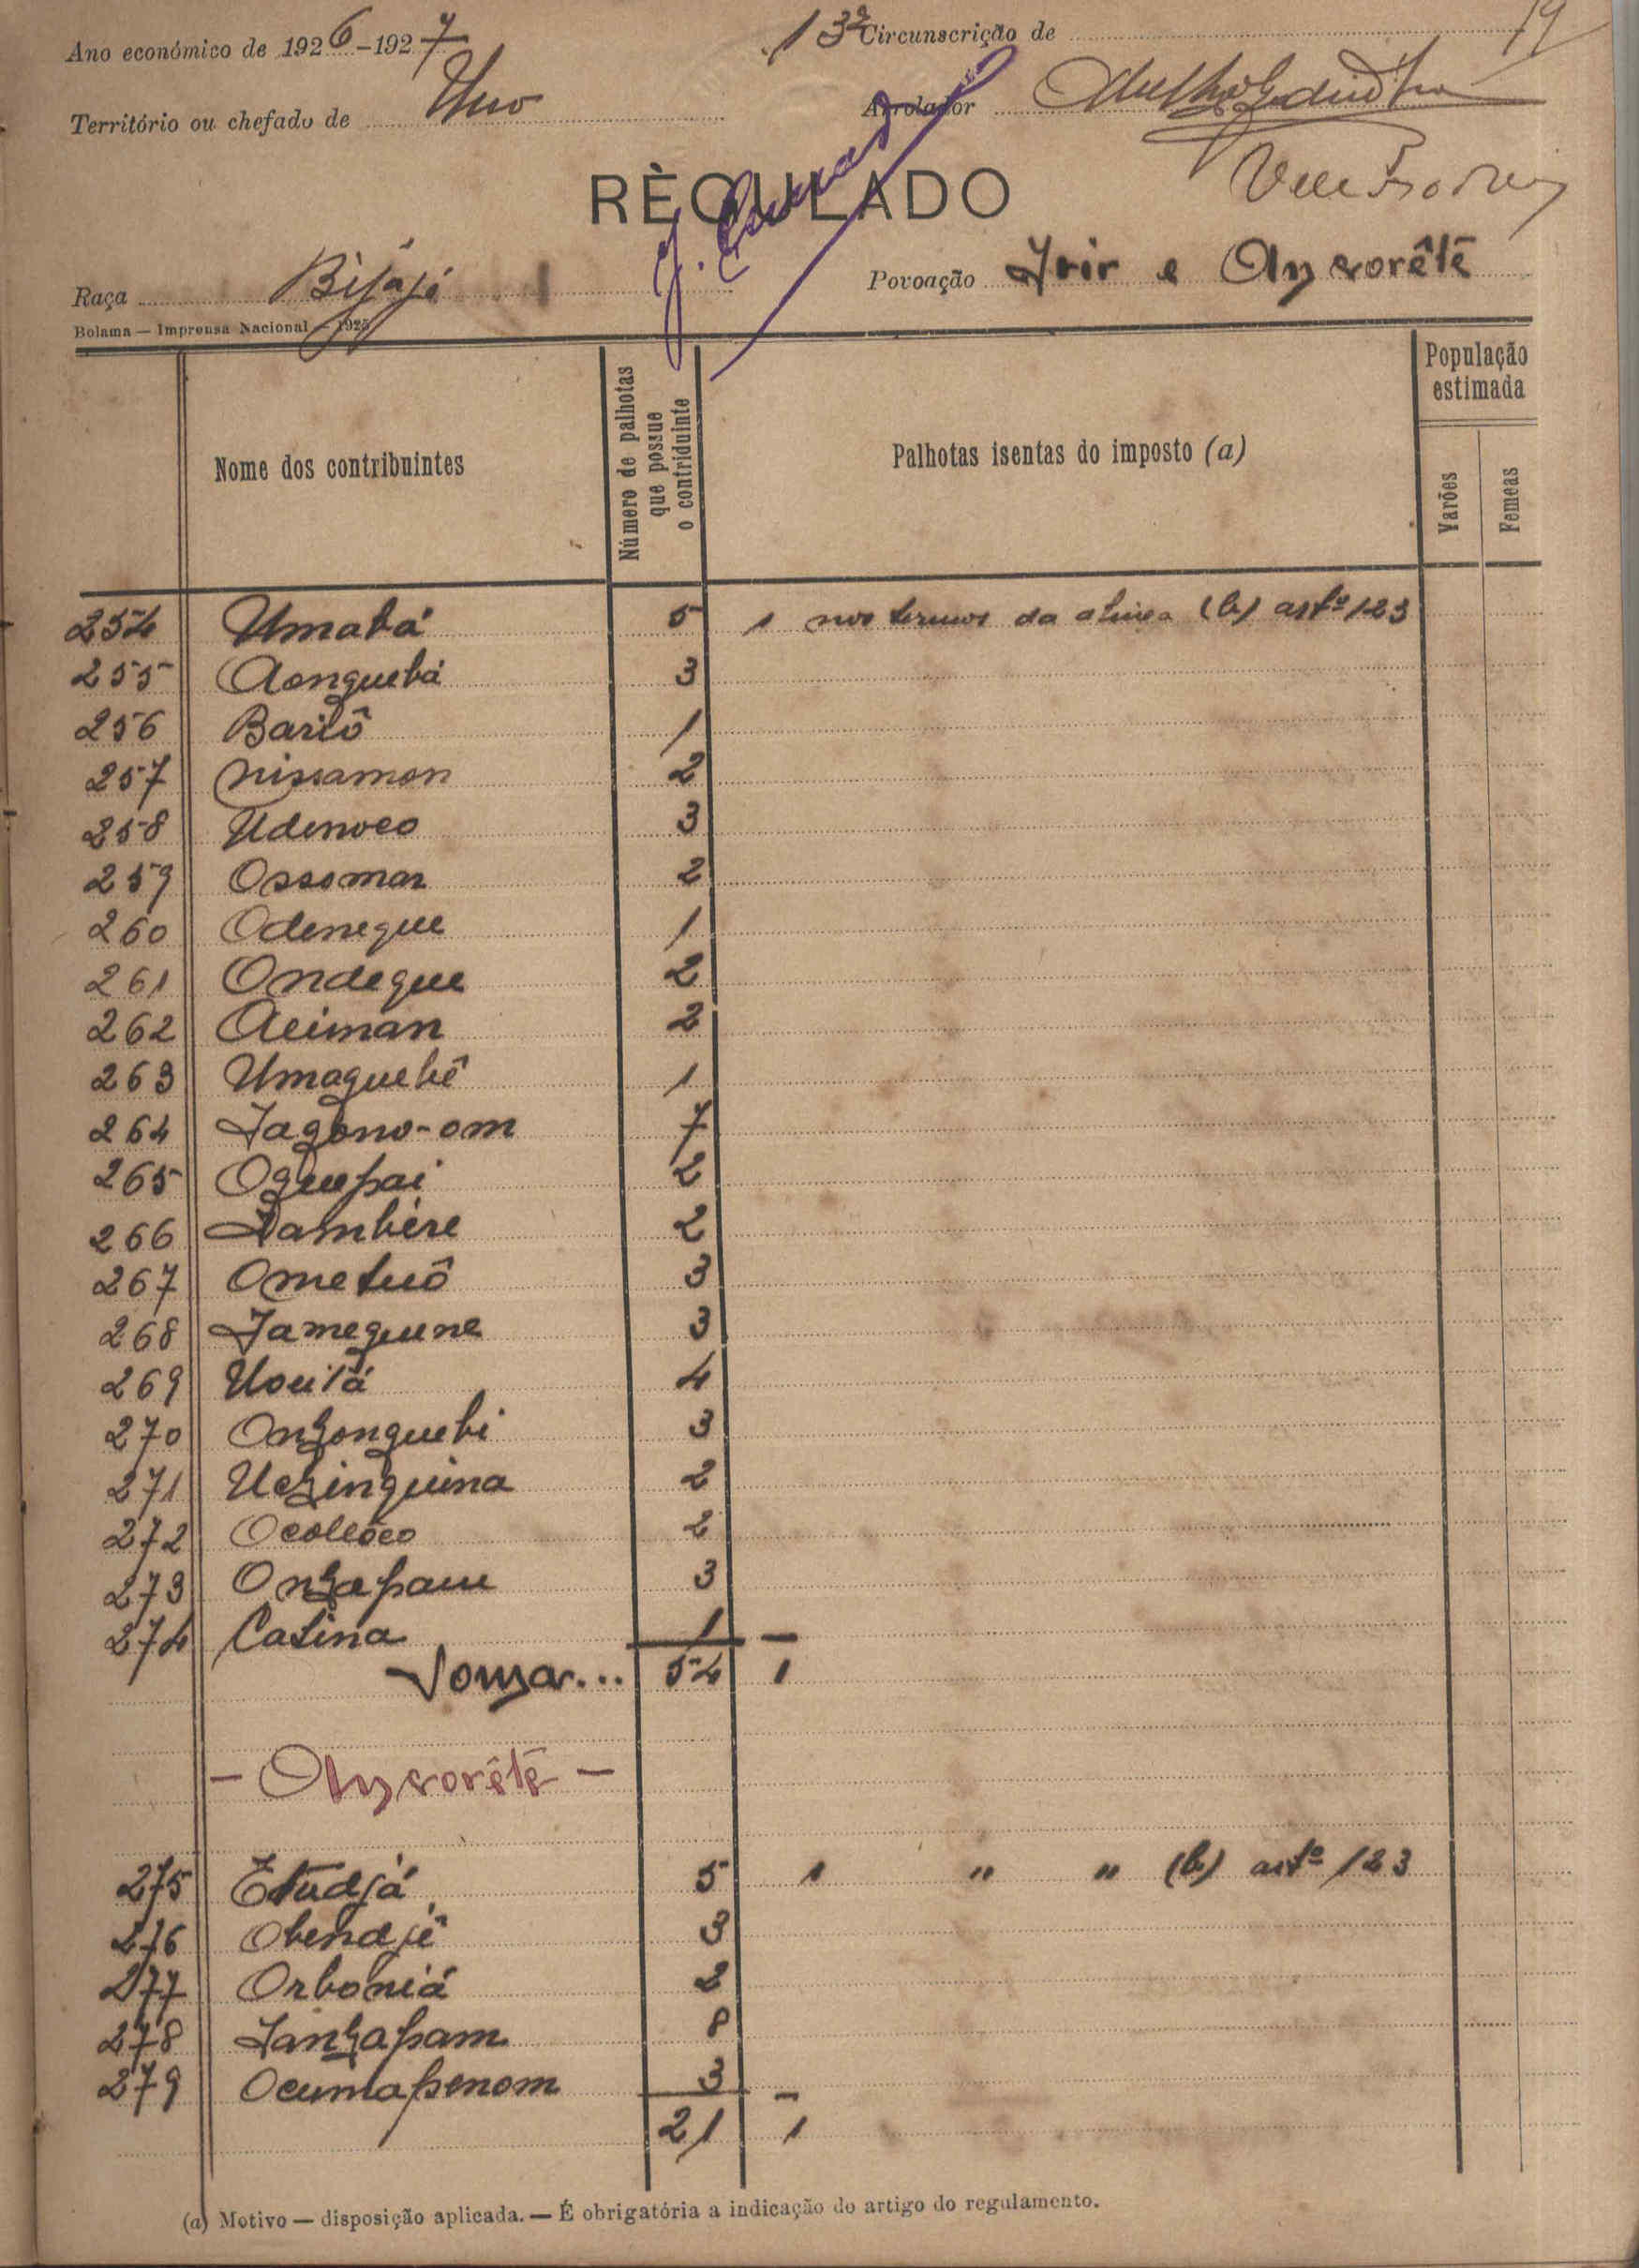 19
Ano económico de 1926-1927
13ª Circunscrição de
Território ou chefado de Uno
Arrolador
RÈGULADO
Raça Bijagó 1
Povoação
Bolama — Imprensa Nacional — 1925
Nome dos contribuintes
Número de palhotas que possue o contriduinte
Palhotas isentas do imposto (a)
População estimada
Varões
Femeas
254 Umabá 5 1 nos termos da alinea (b) artº 123
255 Aonguebá 3
256 Barilô 1
257 Nissamon 2
258 Udenoco 3
259 Ossoman 2
260 Odeneque 1
261 Ondeque 2
262 Aciman 2
263 Umaquebê 1
264 Jagono-om 7
265 Oguepai 2
266 Dambére 2
267 Ometuô 3
268 Jameguene 3
269 4
270 Onzonguebi 3
271 Uezinguina 2
272 2
273 Onzapane 3
274 Catina 1
Somar... 54 1
275 Etudjá 5 1 " " (b) artº 123
276 Obendjê 3
277 Orboniá 2
278 Janzapam 8
279 Ocumapenom 3
21 1
(a) Motivo — disposição aplicada. — É obrigatória a indicação do artigo do regulamento.